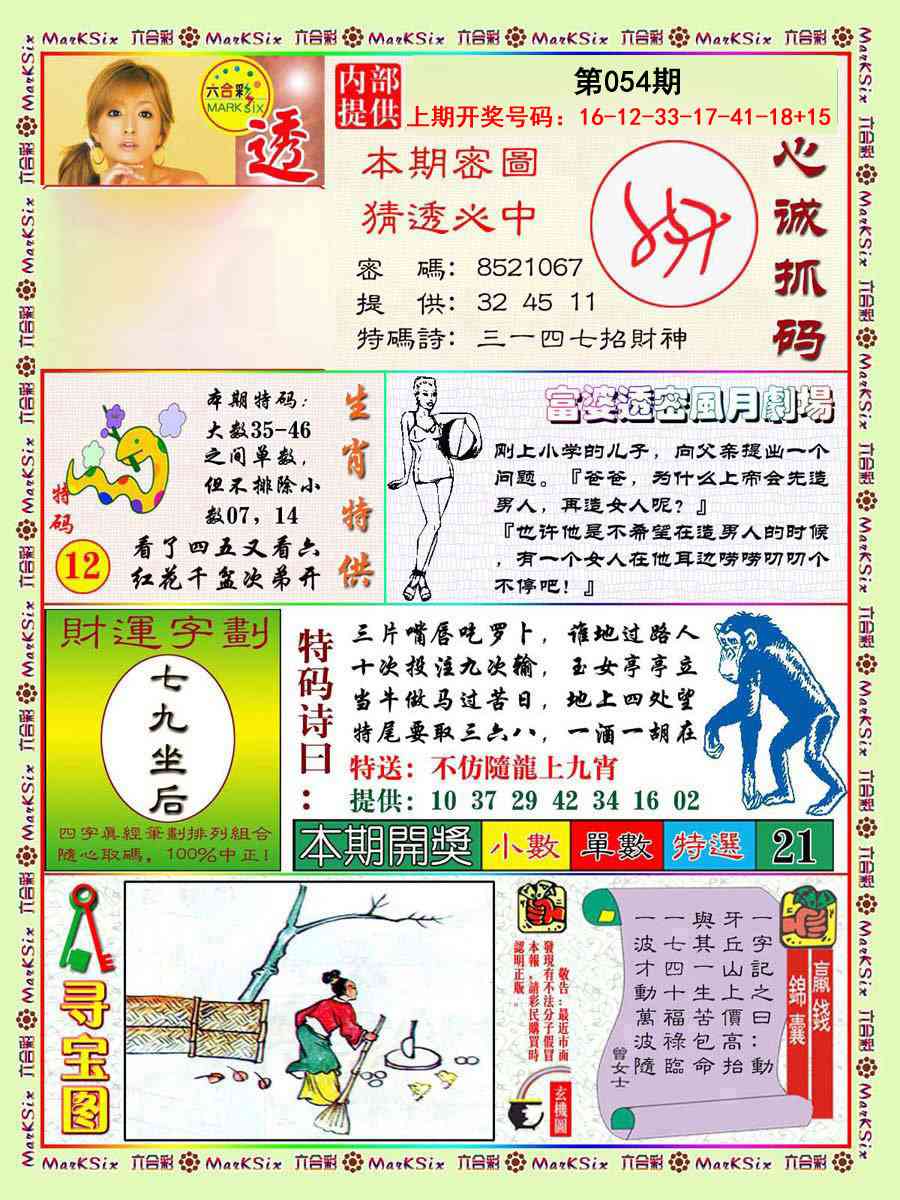 MarKSix 六合彩 MarKSix 六合彩 MarKSix 六合彩 MarKSix 六合彩 MarKSix 六合彩
六合彩
MARK SIX
透
内部
提供
第054期
上期开奖号码：16-12-33-17-41-18+15
本期密圖
猜透必中
密　碼：8521067
提　供：32 45 11
特碼詩：三一四七招財神
心诚抓码
本期特码：
大数35-46
之间单数，
但不排除小
数07，14
看了四五又看六
红花千盆次弟开
特码
12
生肖特供
富婆透密風月劇場
刚上小学的儿子，向父亲提出一个
问题。『爸爸，为什么上帝会先造
男人，再造女人呢？』
『也许他是不希望在造男人的时候
，有一个女人在他耳边唠唠叨叨个
不停吧！』
財運字劃
七九坐后
四字真經筆劃排列組合
隨心取碼，100%中正!
特码诗曰：
三片嘴唇吃罗卜，谁地过路人
十次投注九次输，玉女亭亭立
当牛做马过苦日，地上四处望
特尾要取三六八，一酒一胡在
特送：不仿隨龍上九宵
提供：10 37 29 42 34 16 02
本期開獎 小數 單數 特選 21
寻宝图
敬告：最近市面
發現有不法分子假冒
本報，請彩民購買時
認明正版。
玄機圖
一字記之曰：動
牙丘山上價高抬
與其一生苦包命
一七四十福祿臨
一波才動萬波隨
曾女士
贏錢
錦囊
MarKSix 六合彩 MarKSix 六合彩 MarKSix 六合彩 MarKSix 六合彩 MarKSix 六合彩